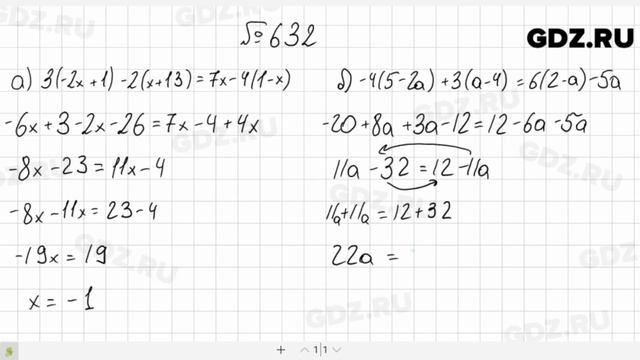 № 632
GDZ.RU
а) 3(-2x+1)-2(x+13)=7x-4(1-x)
-6x+3-2x-26=7x-4+4x
-8x-23=11x-4
-8x-11x=23-4
-19x=19
x=-1
б) -4(5-2a)+3(a-4)=6(2-a)-5a
-20+8a+3a-12=12-6a-5a
11a-32=12-11a
11a+11a=12+32
22a=
1|1